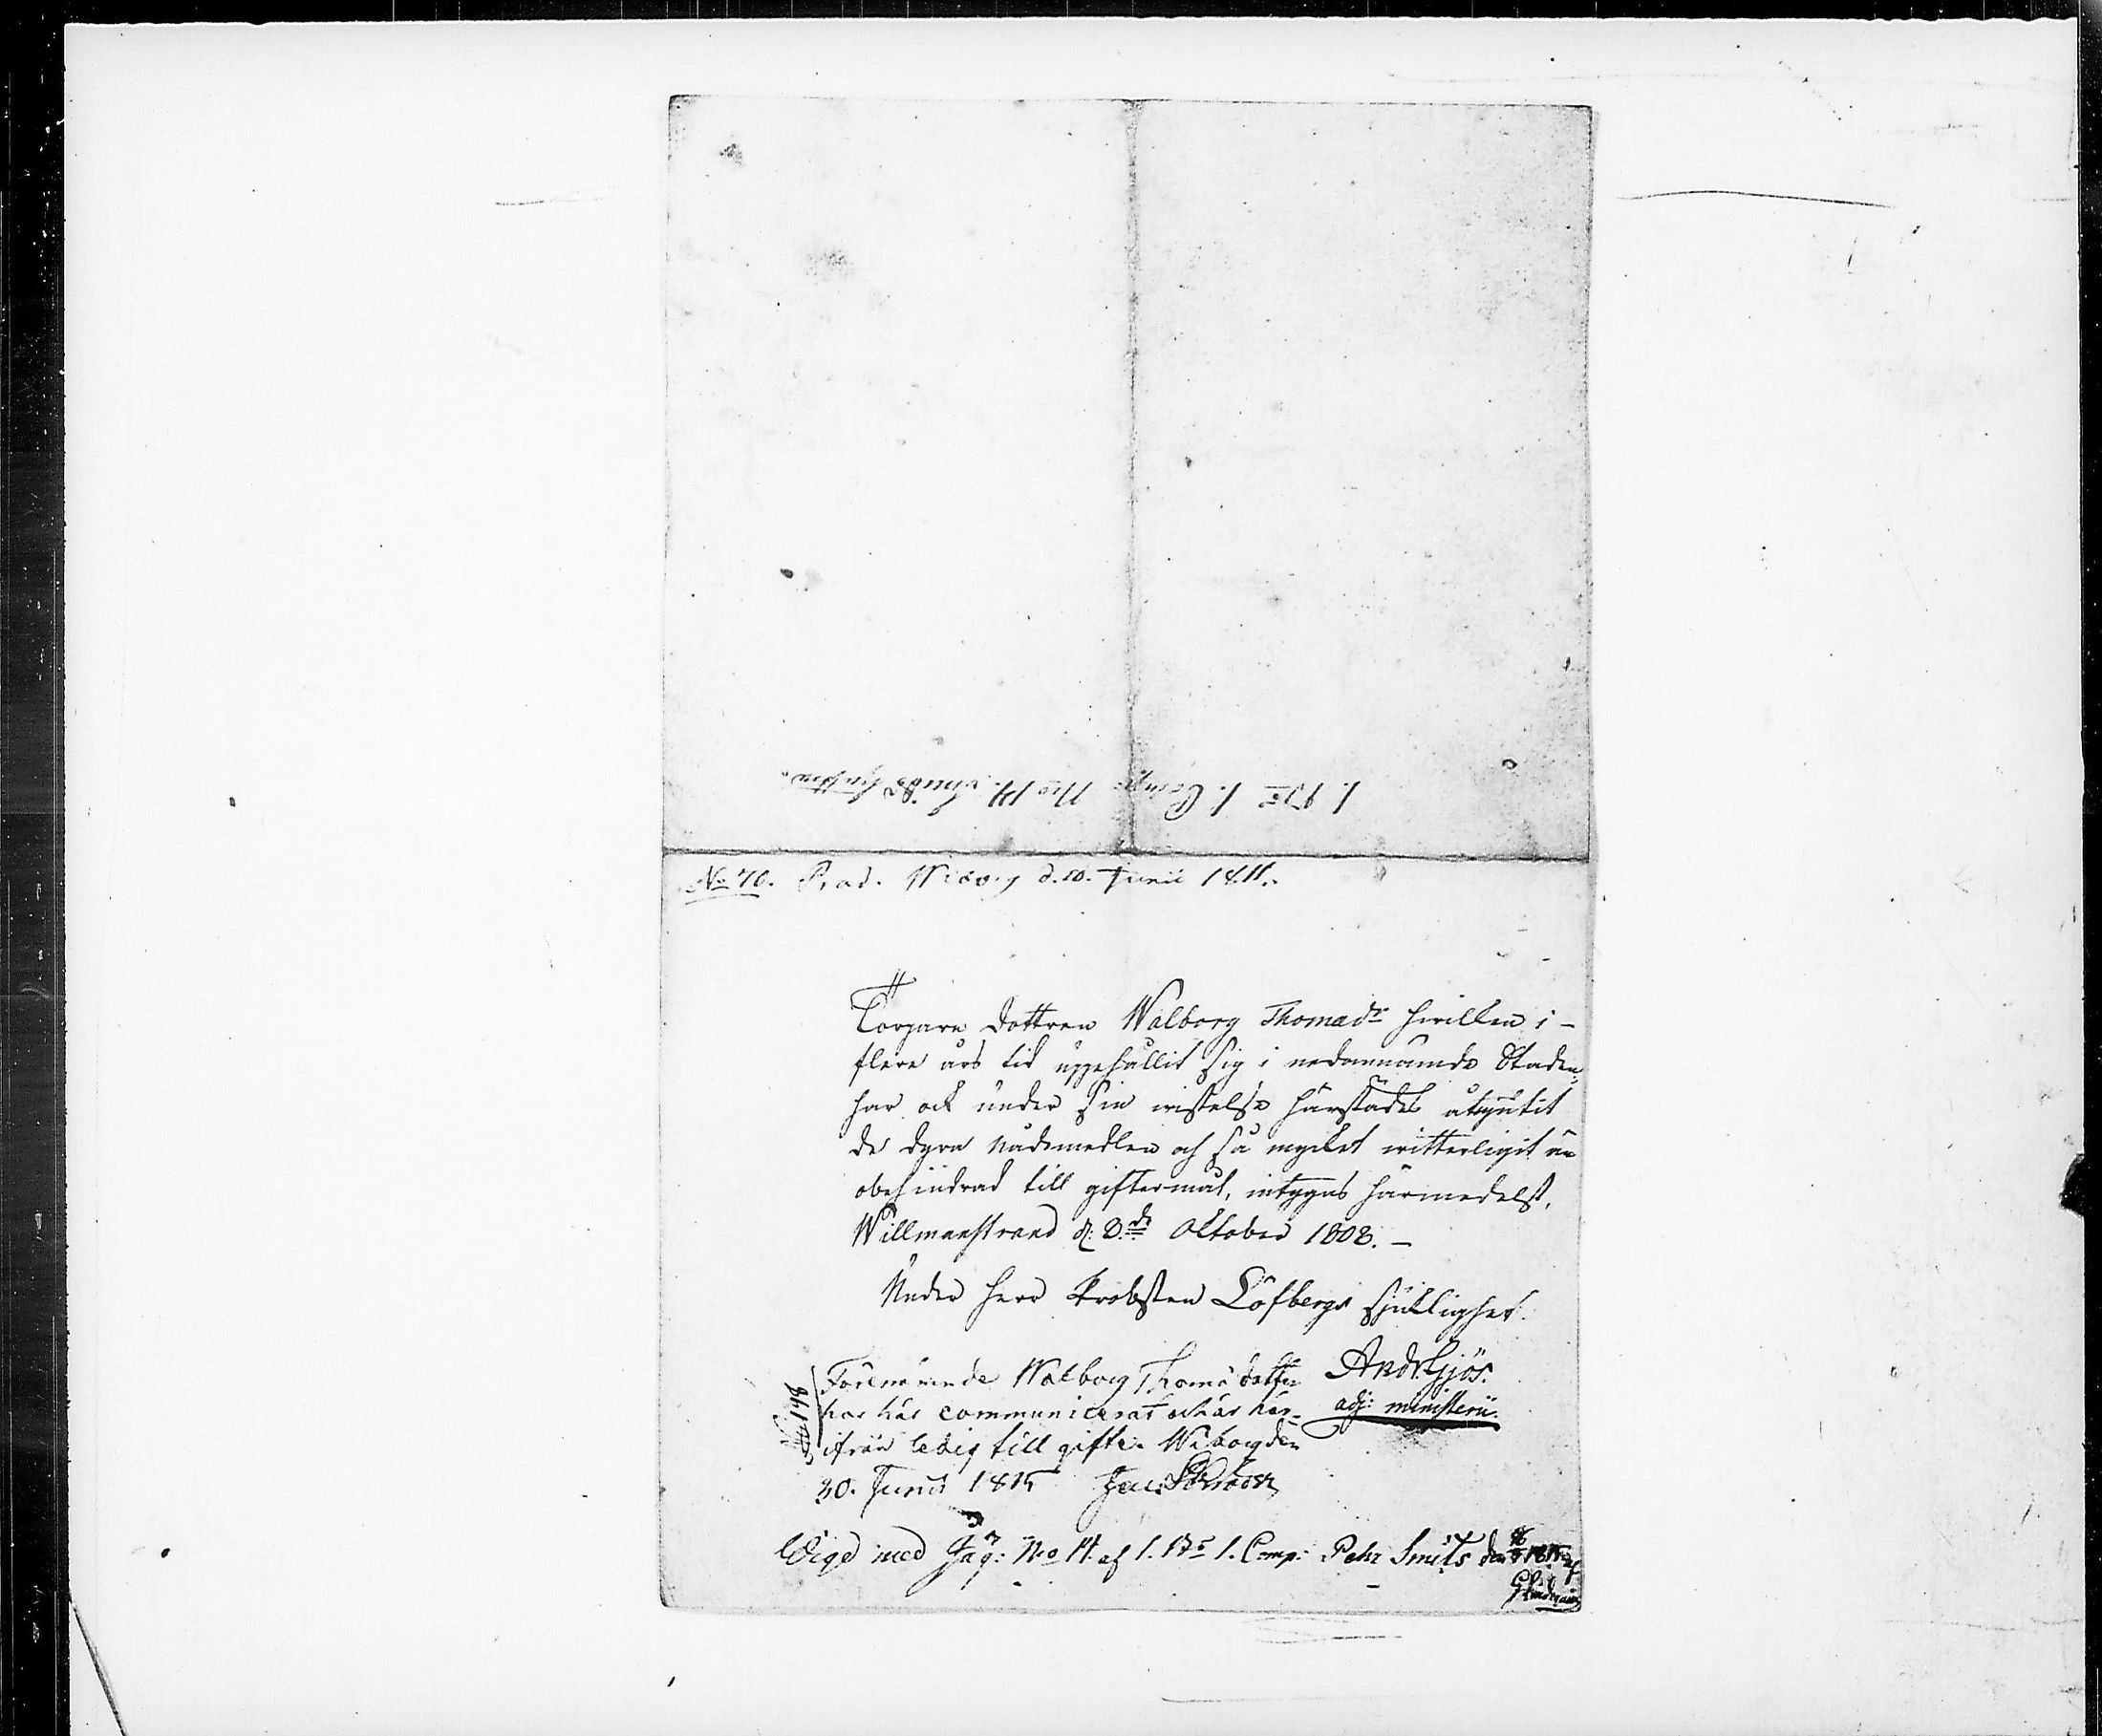 1. B: 1. Comp: No 14. Smids hustru.
No 70. Prod. Wiborg d. 10. Junii 1811.
Torpare dottren Walborg Thomædr hvilken i
flere års tid uppehållit sig i nedannämde Staden,
har ock under sin vistelse härstädes åtnjutit
de dyra nådemedlen och så mycket witterligit är
obehindrad till giftermål, intygas härmedelst.
Willmanstrand d: 3.de Oktober 1808.
Under Herr Probsten Löfbergs sjuklighet.
Andr. Gjös.
adj: ministerii.
No 198
Förenämnde Walborg Thomædotter
har här communicerat och är här-
ifrån ledig till gifte. Wiborg den
30. Junii 1815 Jac:
Wigd med Jäg: No 14. af 1. B: 1. Comp: Pehr Smits den 1815 af